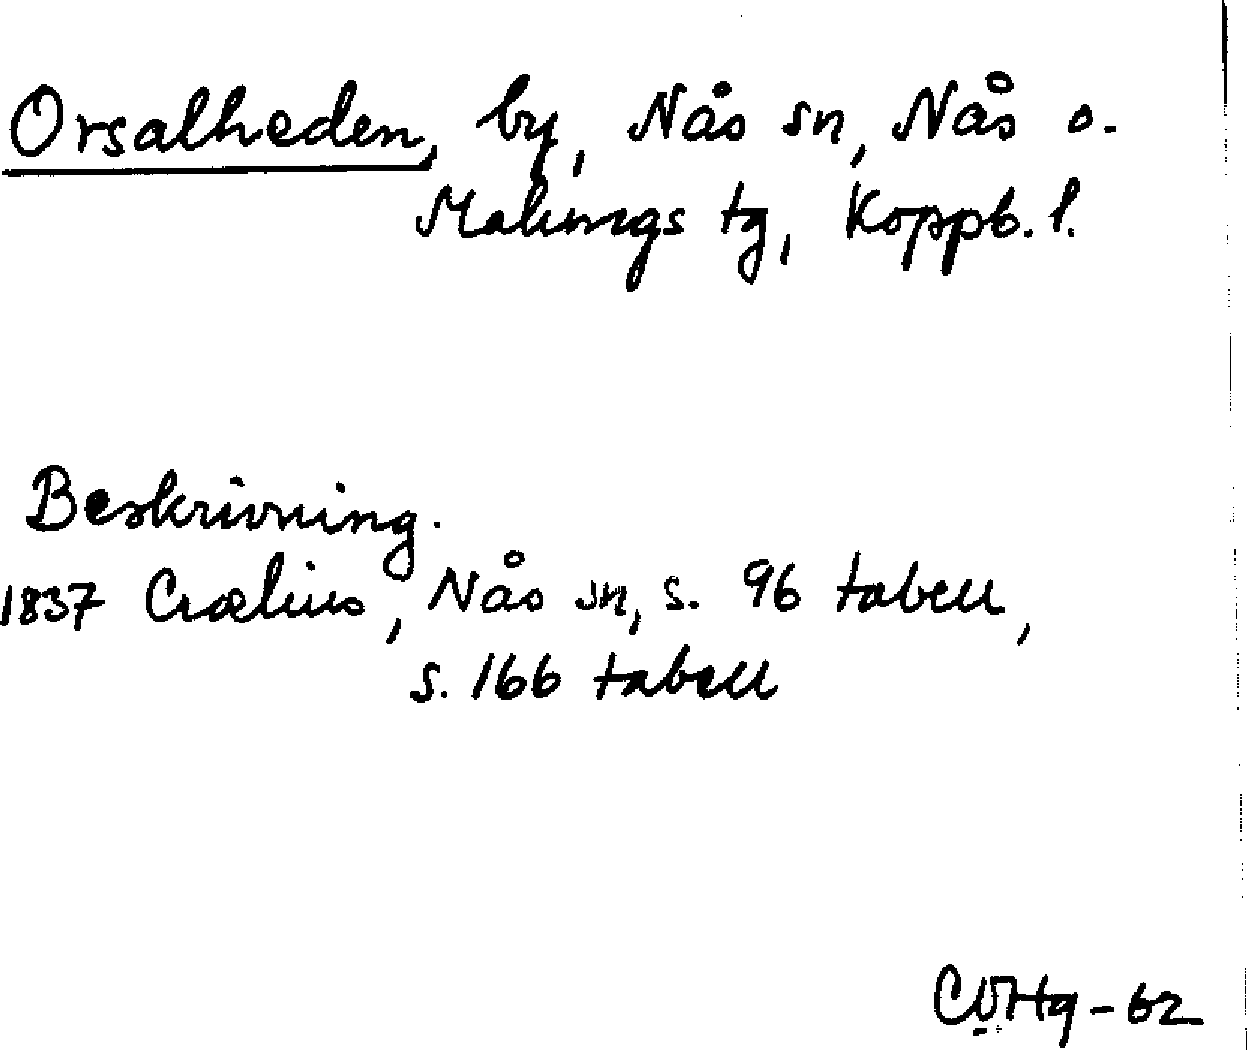 Orsalheden, by, Nås sn, Nås o.
Malungs tg, Koppb. l.
Beskrivning.
1837 Crælius, Nås sn, s. 96 tabell,
s. 166 tabell